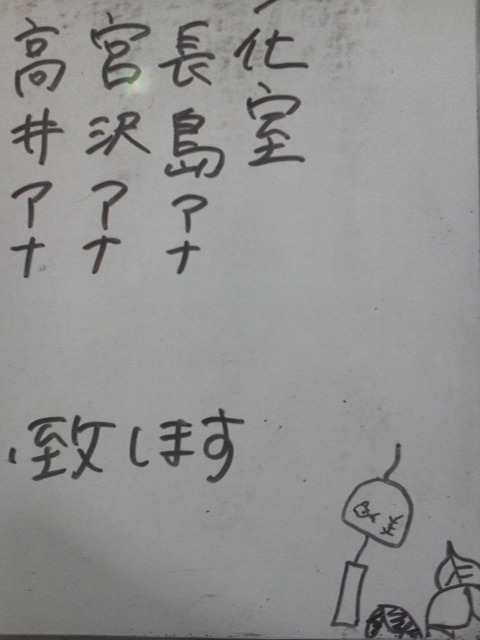 化室
長島アナ
宮沢アナ
高井アナ
致します